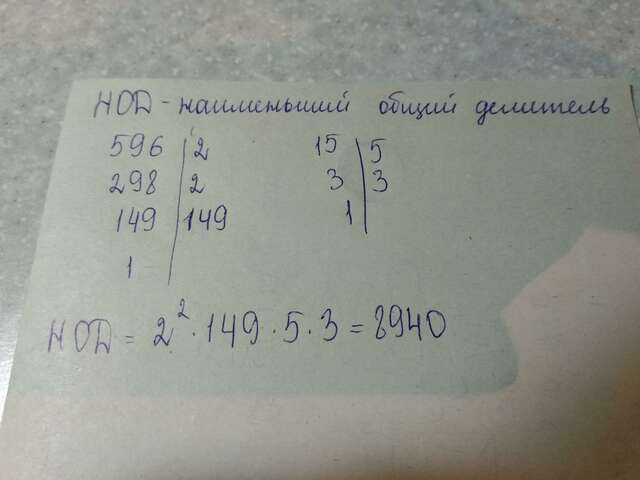 НОД - наименьший общий делитель
596 | 2 15 | 5
298 | 2 3 | 3
149 | 149 1 |
1 |
НОД = 2² · 149 · 5 · 3 = 8940